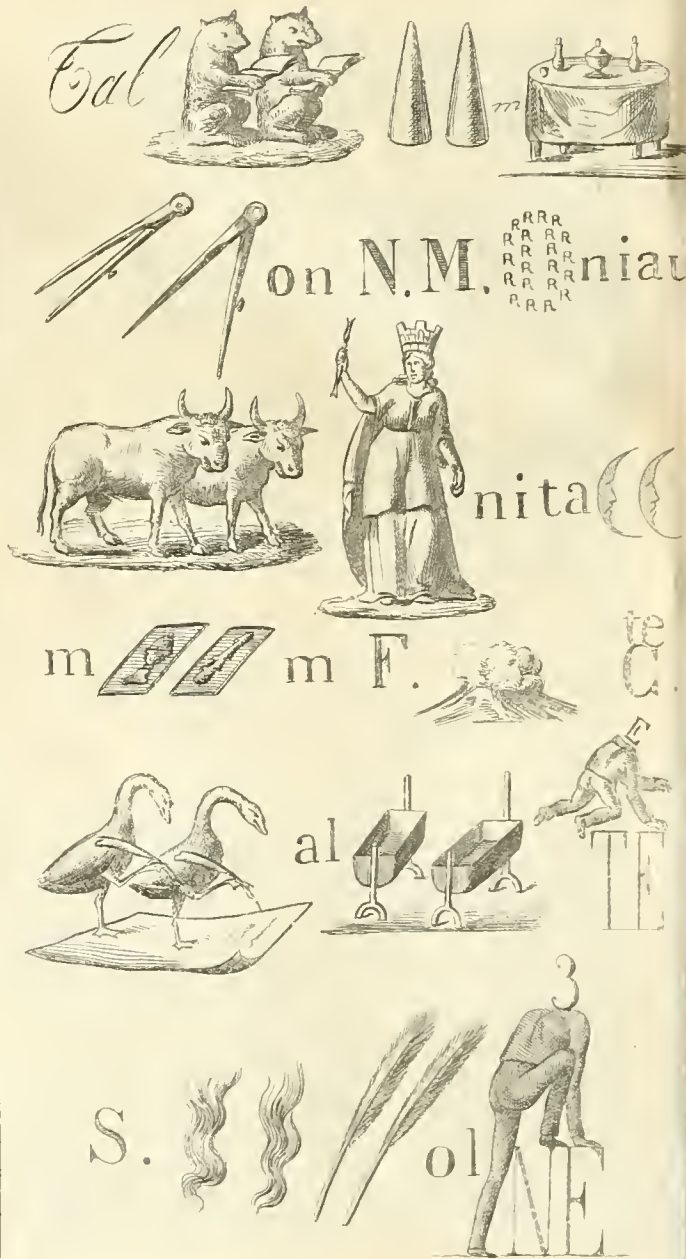 Tal m
on N.M. RRRR RRRR RRRR RRRR RRRR RRR niau
nita
m m F. te
C.
al
TE
3
S. ol NE